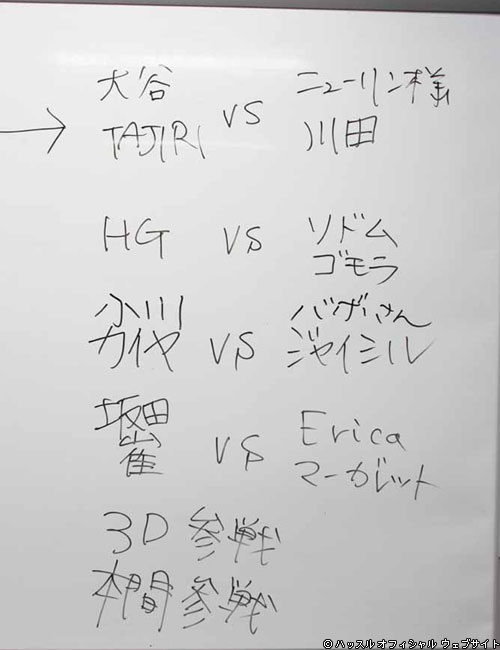 大谷 VS ニューリン様
→ TAJIRI 川田
HG VS ソドム
ゴモラ
小川 バボさん
カイヤ VS ジャイミル
坂田 Erica
崔 VS マーガレット
3D 参戦
本間参戦
© ハッスル オフィシャル ウェブサイト